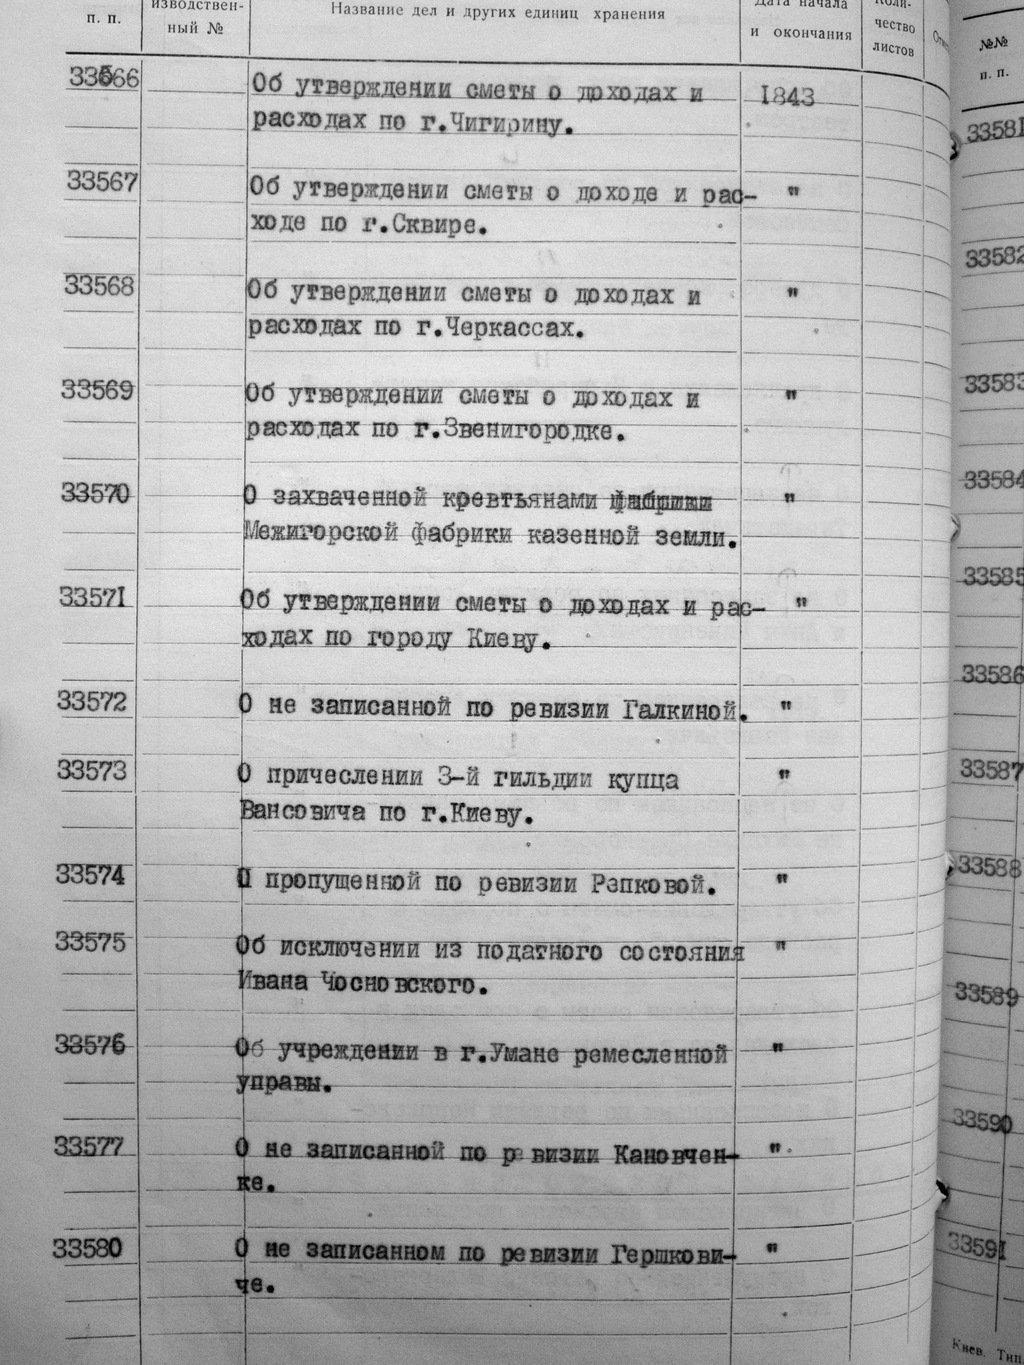 п. п.
изводствен-
ный №
Название дел и других единиц хранения
Дата начала
и окончания
Коли-
чество
листов
33566 Об утверждении сметы о доходах и 1843
расходах по г.Чигирину.
33567 Об утверждении сметы о доходе и рас- "
ходе по г.Сквире.
33568 Об утверждении сметы о доходах и "
расходах по г.Черкассах.
33569 Об утверждении сметы о доходах и "
расходах по г.Звенигородке.
33570 О захваченной кревтьянами фабрики "
Межигорской фабрики казенной земли.
33571 Об утверждении сметы о доходах и рас- "
ходах по городу Киеву.
33572 О не записанной по ревизии Галкиной. "
33573 О причеслении 3-й гильдии купца "
Вансовича по г.Киеву.
33574 О пропущенной по ревизии Рапковой. "
33575 Об исключении из податного состояния "
Ивана Чосновского.
33576 Об учреждении в г.Умане ремесленной "
управы.
33577 О не записанной по ревизии Кановчен- "
ке.
33580 О не записанном по ревизии Гершкови- "
че.
№№
п. п.
33581
33582
33583
33584
33585
33586
33587
33588
33589
33590
33591
Киев. Тип